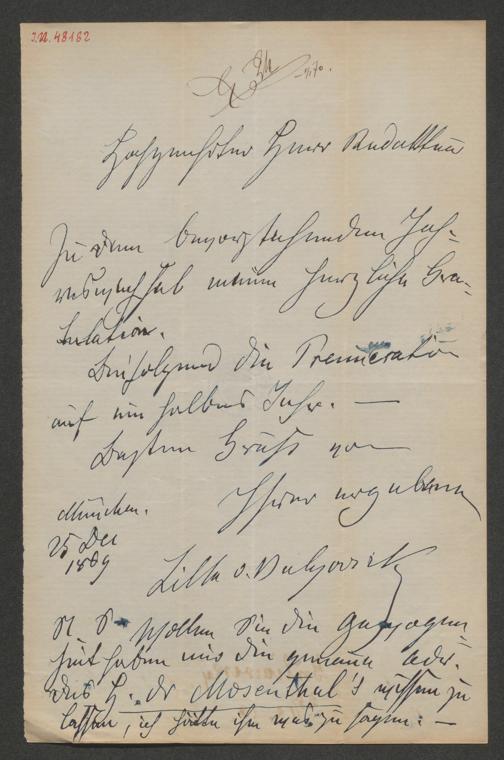 I.N. 48182
Hochgeehrter Herr Redakteur
Zu dem bevorstehenden Jah=
reswechsel meine herzliche Gra=
tulation.
Beifolgend die Prenumeration
auf ein halbes Jahr. —
Besten Gruß von
Ihrer ergebenen
München.
25 Dec
1869
Lilla v. Bulyovsky
N. S. Wollen Sie die Gewogen=
heit haben mir die genaue Adr.
des H. Dr Mosenthal's wissen zu
lassen, ich hätte ihm was zu sagen. —